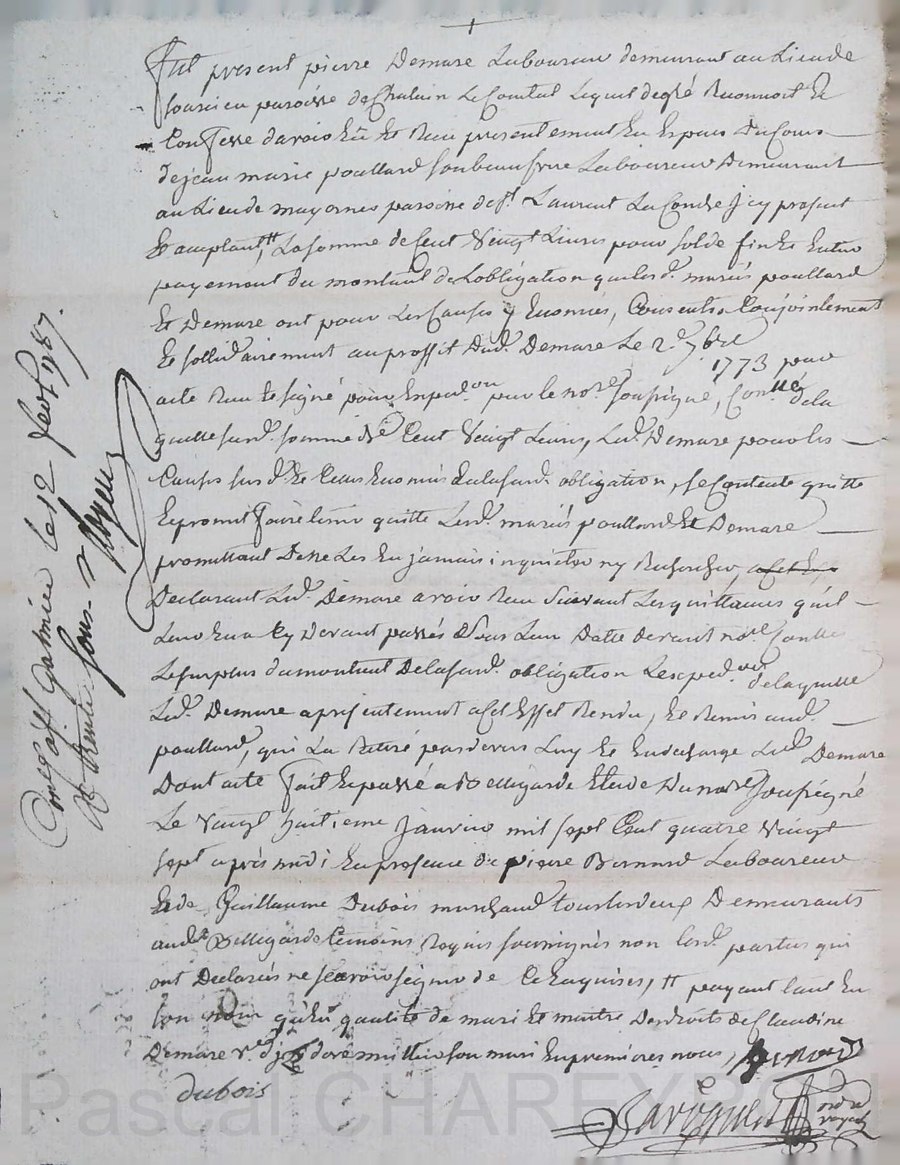 Fut present pierre Demare Laboureur demeurant au Lieu de
paroisse de Chalain Le Comtal Lequel de gré Reconnoit Et
Confesse d'avoir Eü Et Reçu presentement En Espèces Du Cours
de jean marie poullard son beau frere Laboureur Demeurant
au Lieu de mayornes paroisse de St. Laurent La Conche jcy présent
Et acceptant, La somme de Cent Vingt Livres pour solde fin Et Entier
payement du montant de L'obligation que lesd. mariés poullard
Et Demare ont pour Les Causes y Enoncées, Consentie Conjointement
Et sollidairement au proffit Dud. Demare Le 2e 7bre
1773 pour
acte Reçu Et signé pour Expedon par le nore soussigné, Conllé de la
quelle susd. somme De Cent Vingt Livres, Led. Demare pour les
Causes susd. Et Celles Enoncées En lasusd. obligation, se Contente quitte
Et promet faire tenir quitte Lesd. mariés poullard Et Demare
promettant De ne Les En jamais inquieter ny Rechercher,
Declarant Led. Demare avoir Reçu Suivant Les quittances qu'il
Leur En a Cy devant passées Sous Leur Datte devant nore
Le surplus du montant De lasusd. obligation Les de laquelle
Led. Demare a présentement a Cet Effet Rendu, Et Remis aud.
poullard, qui La Retiré pardevers Luy Et En décharge Led. Demare
Dont acte fait Et passé a Bellegarde Etude Du nore soussigné
Le Vingt huitieme janvier mil sept Cent quatre Vingt
sept après midi En presence de pierre Bernard Laboureur
Et de Guillaume Dubois marchand Demeurants
aud. Bellegarde temoins Requis soussignés non Lesd. parties qui
ont Declarés ne sçavoir signer de Ce Enquises, payant tant En
son nom qu'En qualité de mari Et maitre Des droits de Claudine
Demare son mari En premières noces,
dubois
nore
royal
Conlé a St. Galmier le 12 fev. 1787.
R. trente sous
Pascal CHAREYRON